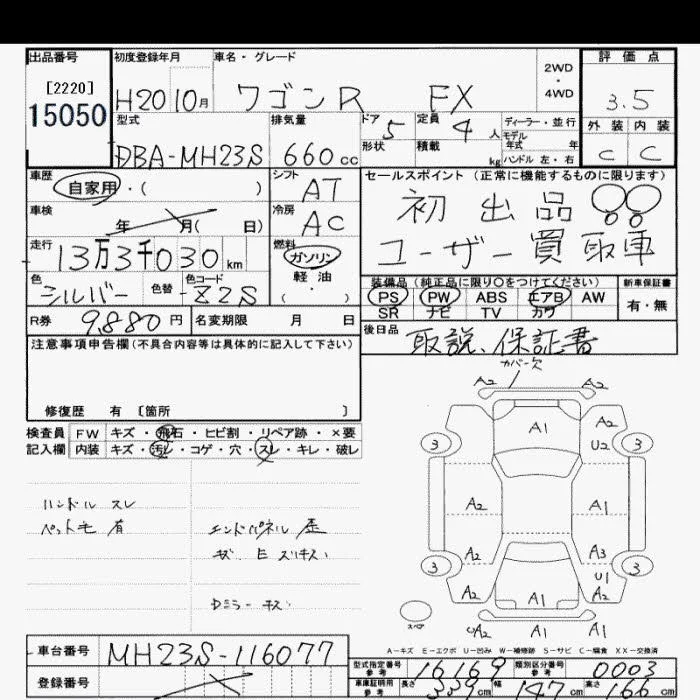 出品番号 初度登録年月 車名・グレード 2WD・4WD 評価点
[2220]
15050
H20 10月 ワゴンR FX 3.5
型式 排気量 ドア 5 定員 4人 ディーラー・並行 外装 内装
モデル年式 年
DBA-MH23S 660cc 形状 積載 kg ハンドル 左・右 C C
車歴 シフト AT セールスポイント (正常に機能するものに限ります)
自家用・( )
初出品
車検 年 月( 日) 冷房 AC
ユーザー買取車
走行 13万3千030km 燃料 ガソリン
軽油
・( )
色 シルバー 色替 色コード Z2S
装備品 (純正品に限り○をつけてください) 新車保証書
PS PW ABS エアB AW 有・無
SR ナビ TV カワ
R券 9,880円 名変期限 月 日
後日品 取説、保証書
注意事項申告欄(不具合内容等は具体的に記入して下さい)
修復歴 有 [箇所 ]
カバー欠
A2 A2
A1 A2
U2
3 3
A2 A1
A2 A3
U1
3 3
A2 A1 A2
A2 A1 A1
スペア
検査員記入欄 FW キズ・飛石・ヒビ割・リペア跡・×要
内装 キズ・汚レ・コゲ・穴・スレ・キレ・破レ
ハンドル スレ
ペット毛 有
エンドパネル 歪
Dミラー キズ
A-キズ E-エクボ U-凹み W-補修跡 S-サビ C-腐食 XX-交換済
車台番号 MH23S-116077
登録番号
型式指定番号 参考 16169 類別区分番号 参考 0003
車庫証明用 参考 長さ 339cm 幅 147cm 高さ 166cm